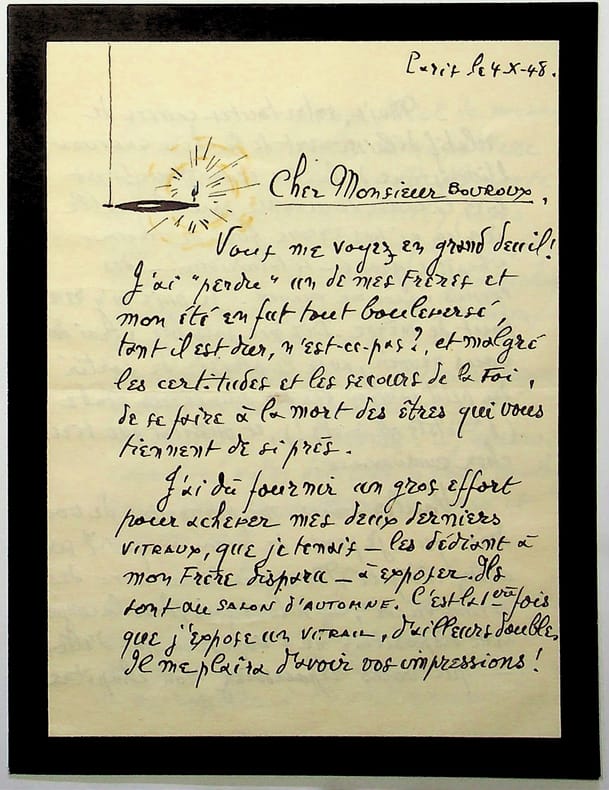 Paris le 4-X-48.
Cher Monsieur Bouroux,
Vous me voyez en grand deuil!
J'ai "perdu" un de mes Frères et
mon été en fut tout bouleversé,
tant il est dur, n'est-ce-pas?, et malgré
les certitudes et les secours de la Foi,
de se faire à la mort des êtres qui vous
tiennent de si près.
J'ai dû fournir un gros effort
pour achever mes deux derniers
VITRAUX, que je tenais _ les dédiant à
mon Frère disparu _ à exposer. Ils
sont au SALON D'AUTOMNE. C'est la 1ère fois
que j'expose un VITRAIL, d'ailleurs double.
Il me plaira d'avoir vos impressions!